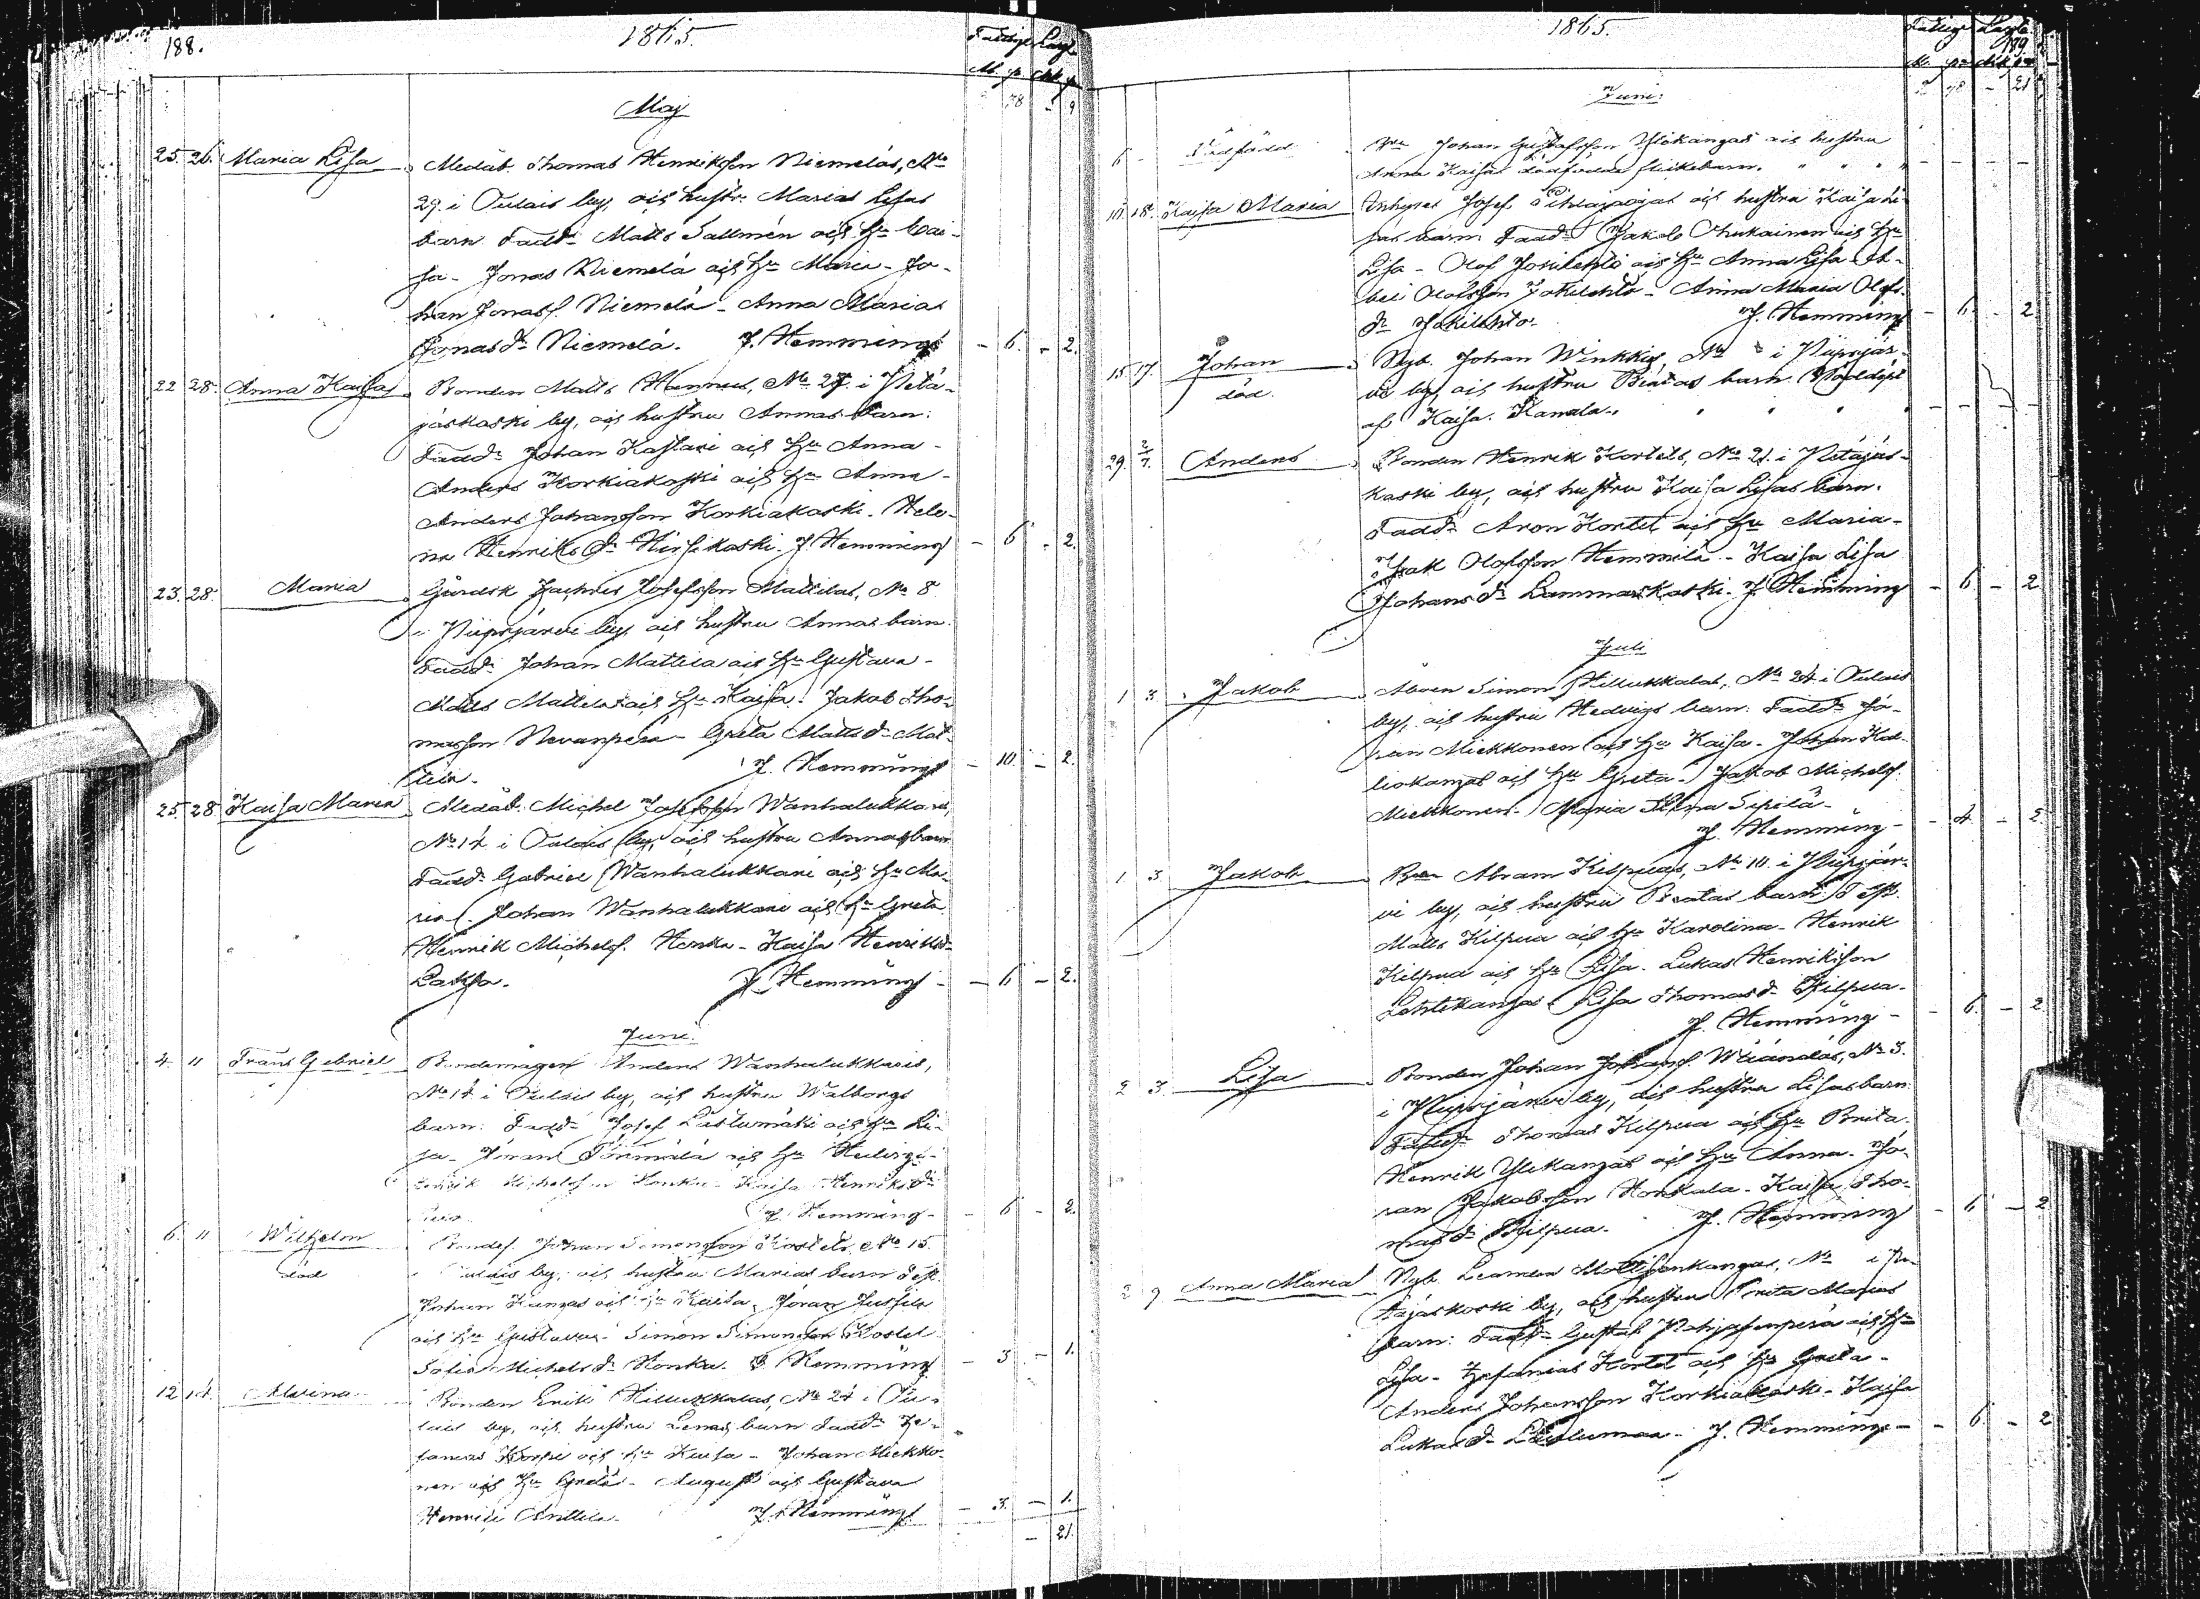 188.
1865.
Maj
25. 26. Maria Lisa Medåb. Thomas Henriksson Niemeläs, No
29. i Oulais by, och hustr. Marias Lisas
barn. Fadd: Matts Sallmén och Hu Kai-
sa - Jonas Niemelä och Hu Maria - Jo-
han Jonass. Niemelä - Anna Maria
Jonasdr Niemelä. J. Hemming - 6. - 2.
22 28. Anna Kaisa Bonden Matts Hannus, No 27. i Petä-
jäskoski by, och hustru Annas barn:
Fadd: Johan Kastari och Hu Anna -
Anders Korkiakoski och Hu Anna -
Anders Johansson Korkiakoski. Hele-
na Henriksdr Hirsikoski. J. Hemming - 6 - 2.
23. 28. Maria Gårdsk Zachris Josefsson Mattilas, No 8
i Piipsjärvi by, och hustru Annas barn.
Fadd: Johan Mattila och Hu Gustava -
Matts Mattila och Hu Kaisa. Jakob Tho-
masson Nevanperä - Greta Mattsdr Mat-
tila. J. Hemming - 10. - 2.
25. 28 Kaisa Maria Medåb. Michel Josefsson Wanhalukkari,
No 14 i Oulais by, och hustru Annas barn
Fadd: Gabriel Wanhalukkari och Hu Ma-
ria. Johan Wanhalukkari och Hu Greta
Henrik Michels. Honka - Kaisa Henriksdr
J. Hemming - 6 - 2.
Juni.
4. 11 Frans Gabriel Bondemågen Anders Wanhalukkaris,
No 14 i Oulais by, och hustru Walborgs
barn: Fadd: Josef Lastumäki och Hu Li-
sa - Jöran Törmälä och Hu Hedvig -
Henrik Michelsson Honka - Kaisa Henriksdr
J. Hemming - 6 - 2.
6. 11 Wilhelm Bondes. Johan Simonsson Kostets, No 15.
död Oulais by, och hustru Marias barn Test
Johan Kangas och Hu Kaisa, Jöran Jussila
och Hu Gustava - Simon Simonson Kostet
Sofia Michelsdr Honka. J. Hemming - 3 - 1.
12 14. Maria Bonden Erik Hillukkalas, No 24 i Ou-
lais by, och hustru Lenas barn Fadd: Ze-
fanias och Hu Kaisa - Johan Miekko-
nen och Hu Greta - August och Gustava
Henrik Anttila. J. Hemming - 3. - 1.
- 21.
1865.
189.
Juni.
6 - Dödfödd Johan Gustafsson Ylikangas och hustru
Anna Kaisas dödfödda flickebarn.
18. Kaisa Maria Inhyses Josef Pihlajaojas och hustru Kaisa Li-
sas barn. Fadd: Jakob och Hu
Lisa - Olof Jokilehto och Hu Anna Lisa - A-
bel Olofsson Jokilehto - Anna Maria Olofs-
dr Jokilehto - J. Hemming - 6. - 2.
15 17. Johan Nyb. Johan Winkkis, No i Piipsjär-
död. vi by, och hustru Beatas barn. Nöddöpt
af Kaisa Kandela.
29. 2/7. Anders Bonden Henrik Kortets, No 21. i Petäjäs-
koski by, och hustru Kaisa Lisas barn.
Fadd: Aron Kortet och Hu Maria -
Isak Olofsson Hemmilä - Kaisa Lisa
Johansdr Lammaskoski. J. Hemming - 6 - 2
Juli
1 3. Jakob Åboen Simon Hillukkalas, No 24 i Oulais
by, och hustru Hedvigs barn. Fadd: Jö-
ran Miekkonen och Hu Kaisa - Johan Kal-
liokangas och Hu Greta - Jakob Michels.
Miekkonen - Maria Sepilä -
J. Hemming - 4. - 2.
1 3 Jakob Abram Kilpuas, No 10. i Piipsjär-
vi by, och hustru Beatas barn: Test.
Matts Kilpua och Hu Karolina - Henrik
Kilpua och Hu Lisa. Lukas Henriksson
Lehtikangas - Lisa Thomasdr Kilpua -
J. Hemming - 6. - 2
2 3. Lisa Bonden Johan Johanss. No 3.
i Piipsjärvi by, och hustru Lisas barn
Fadd: Thomas Kilpua och Hu Brita.
Henrik Ylikangas och Hu Anna. Jö-
ran Jakobsson Honkala - Kaisa Tho-
masdr Kilpua. J. Hemming - 6 - 2
2 9. Anna Maria Nyb. Leander No i Pe-
täjäskoski by, och hustru Brita Marias
barn: Fadd: Gustaf Pohjasenperä och Hu
Lisa - Zefanias Kortet och Hu Greta -
Anders Johansson Korkiakoski - Kaisa
Lukasdr J. Hemming - - 6 - 2